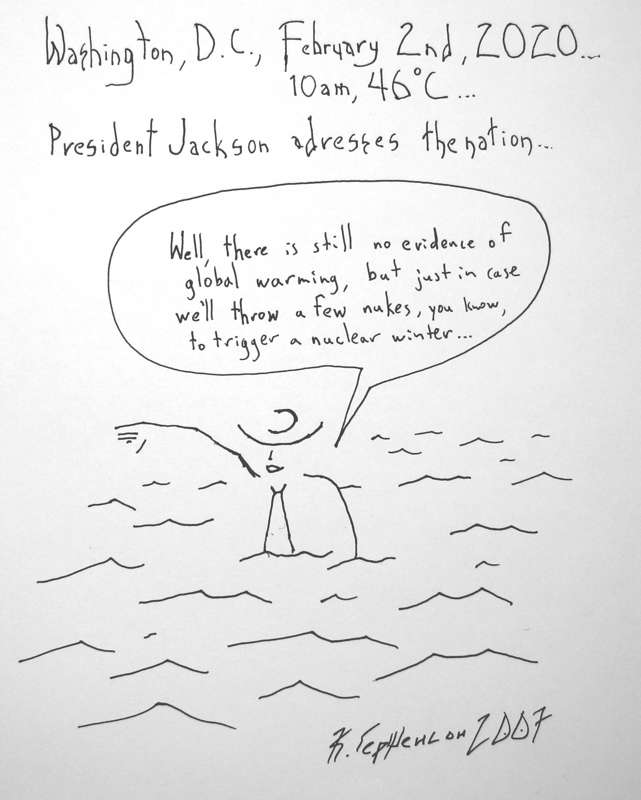 Washington, D.C., February 2nd, 2020...
10am, 46°C...
President Jackson adresses the nation...
Well, there is still no evidence of
global warming, but just in case
we'll throw a few nukes, you know,
to trigger a nuclear winter...
2007